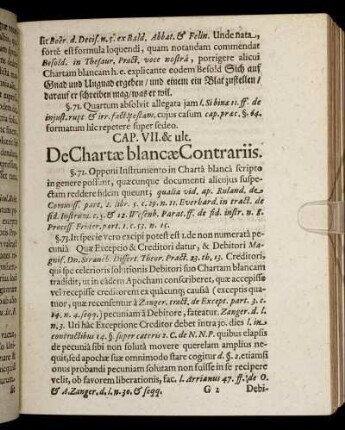 sit Boër. d. Decis. n. 1. ex Bald, Abbat. & Felin. Unde nata
fortè est formula loquendi, quam notandam commendat
Besold. in Thesaur. Pract. voce nostrâ, porrigere alicui
Chartam blancam h. e. explicante eodem Besold Sich auf
Gnad und Ungnad ergeben / und einem ein Blat zustellen /
darauf er schreiben mag / was er wil.
§. 71. Quartum absolvit allegata jam l. Si bina 11. ff. de
injust. rupt. & irr. fact. testam. cujus casum cap. præc. §. 64.
formatum hic repetere super sedeo.
CAP. VII. & ult.
De Chartæ blancæ Contrariis.
§. 72. Opponi Instrumento in Chartâ blancâ scripto
in genere possunt, quæcunque documenti alicujus suspe-
ctam reddere fidem queunt, qualia vid. ap. Ruland. de
Commiss. part. 2. libr. 5. c. 19. n. 21. Everhard. in tract. de
fid. Instrum. c. 3. & 12. Wesenb. Parat. ff. de fid. instr. n. 8.
Process. Feider. part. 1. c. 15. n. 15.
§. 73. In specie vero excipi potest est 1. de non numeratâ pe-
cuniâ. Quæ Exceptio & Creditori datur, & Debitori Ma-
gnif. Dn. Strauch. Dissert. Theor. Pract. 23. th. 13. Creditori,
qui spe celerioris solutionis Debitori suo Chartam blancam
tradidit, ut in eâdem Apocham conscriberet, quæ accepisse
vel recepisse creditorem ex quâcunq; causâ (exceptis qua-
tuor, quæ recensentur à Zanger. tract. de Except. part. 3. c.
14. n. 4. seqq.) pecuniam à Debitore, fateatur. Zanger. d. l.
n. 3. Uti hâc Exceptione Creditor debet intra 30. dies l. in
contractibus 14. § super cateris 2. C. de N. N. P. quibus elapsis
de pecuniâ sibi non solutâ movere querelam amplius ne-
quit, sed apochæ suæ omnimodo stare cogitur d. §. 2. etiamsi
onus probandi pecuniam solutam non fuisse in se recipere
velit, ob favorem liberationis, fac. l. Arrianus 47. ff. de O.
& A. Zanger. d. l. n. 30. & seqq.
G 2 Debi-